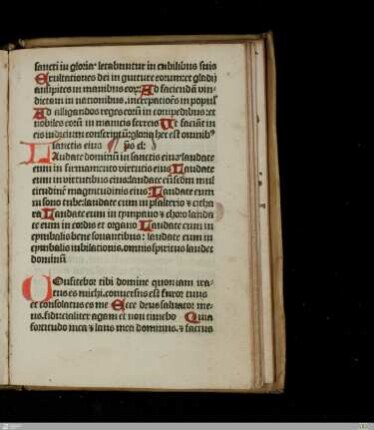 sancti in gloria· letabuntur in cubilibus suis
Exultationes dei in gutture eorum: et gladij
ancipites in manibus eoꝝ: Ad faciendā vin
dictam in nationibus, increpatiōes in popul'
Ad alligandos reges eorū in compedibus: et
nobiles eorū in manicis ferreis Ut faciāt in
eis iudicium conscriptū: gloria hec est omnibꝰ
sanctis eius
Laudate dominū in sanctis eius: laudate
eum in firmamento virtutis eius Laudate
eum in virtutibus eius: laudate eū scdm mul
titudinē magnitudinis eius: Laudate eum
in sono tube: laudate eum in psalterio & citha
ra Laudate eum in tympano & choro: lauda
te eum in cordis et organo Laudate eum in
cymbalis bene sonantibus: laudate eum in
cymbalis iubilationis, omnis spiritus laudet
dominū
Confitebor tibi domine quoniam ira-
tus es michi, conuersus est furor tuus
et consolatus es me Ecce deus saluator me-
us, fiducialiter agam et non timebo Quia
fortitudo mea & laus mea dominus, & factus